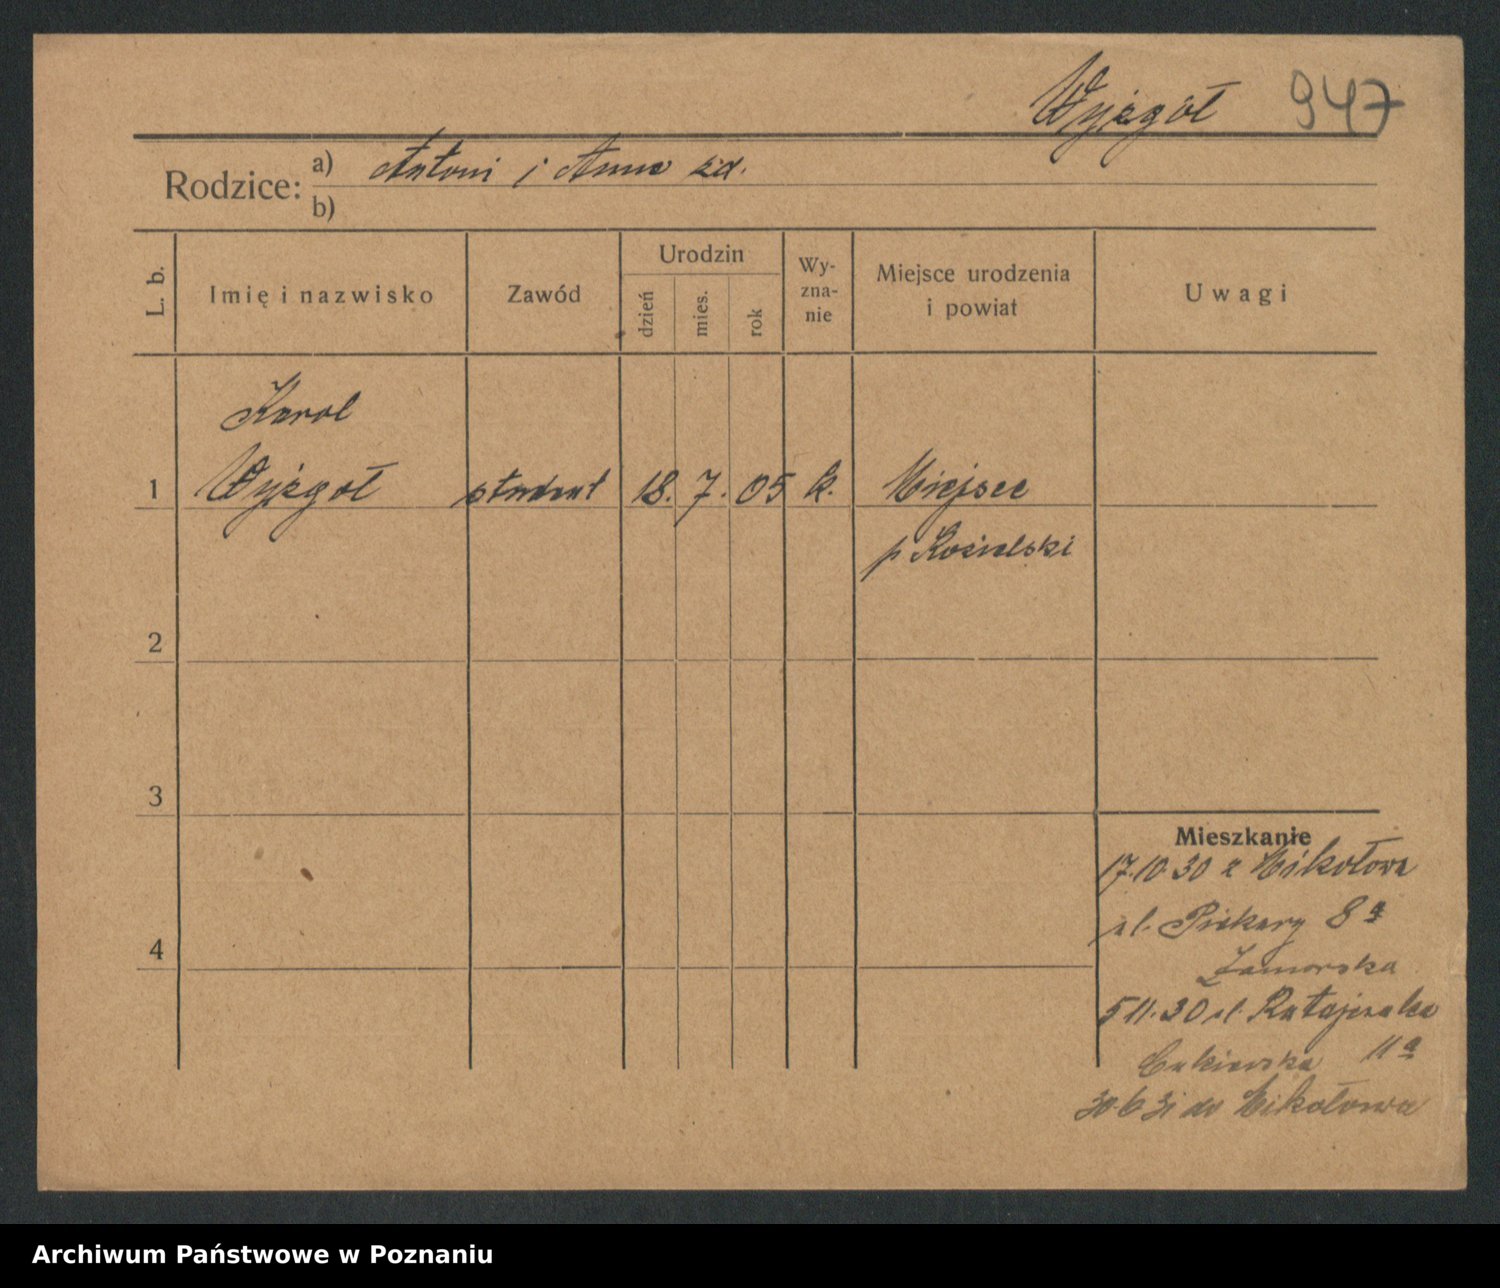 Wyżgoł 947
Rodzice: a) Antoni i Anna
b)
L. b. Imię i nazwisko Zawód Urodzin dzień mies. rok Wy-zna-nie Miejsce urodzenia i powiat Uwagi
Karol
1 Wyżgoł student 18. 7. 05 k. Miejsce
p Kozielski
2
3
Mieszkanie
17.10.30 z Mikołowa
ul. Piekary 8a
4 Zamorska
5 11.30 ul. Ratajczaka
11a
30.6 31 do Mikołowa
Archiwum Państwowe w Poznaniu